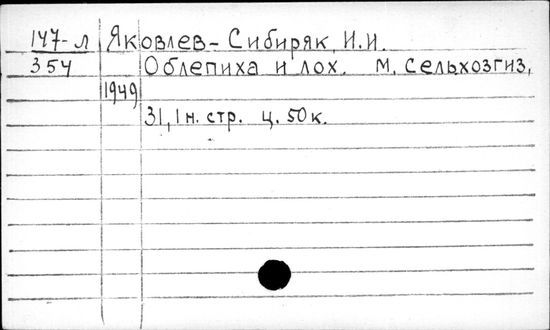 147-л Яковлев-Сибиряк, И.И.
354 Облепиха и лох. М, Сельхозгиз,
1949
31, 1 н. стр. ц. 50 к.